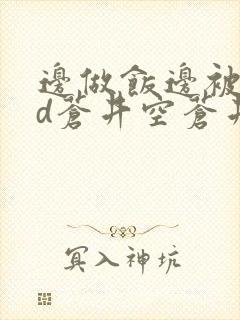 邊做飯邊被
d蒼井空蒼井
冥入神坑